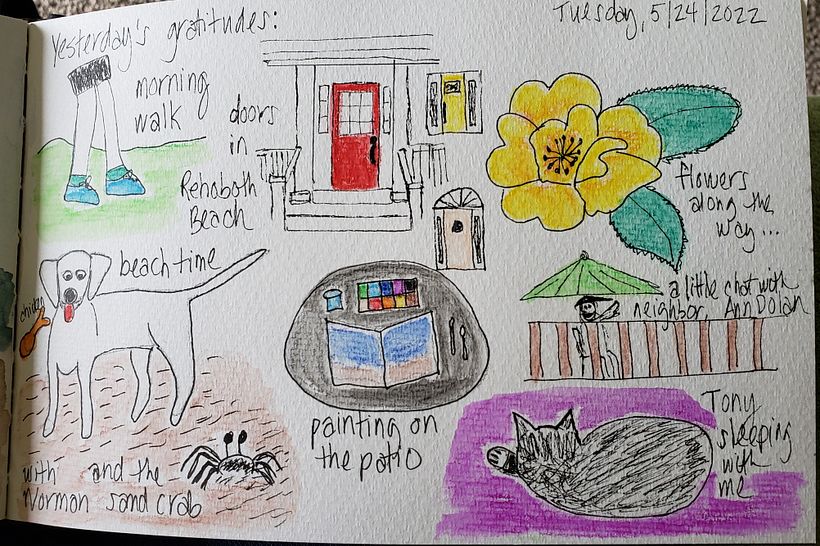 Yesterday's gratitudes:
Tuesday, 5/24/2022
morning
walk
doors
in
Rehoboth
Beach
flowers
along the
way...
beach time
chicky
with and the
Norman sand crab
painting on
the patio
a little chat with
neighbor, Ann Dolan
Tony
sleeping
with
me